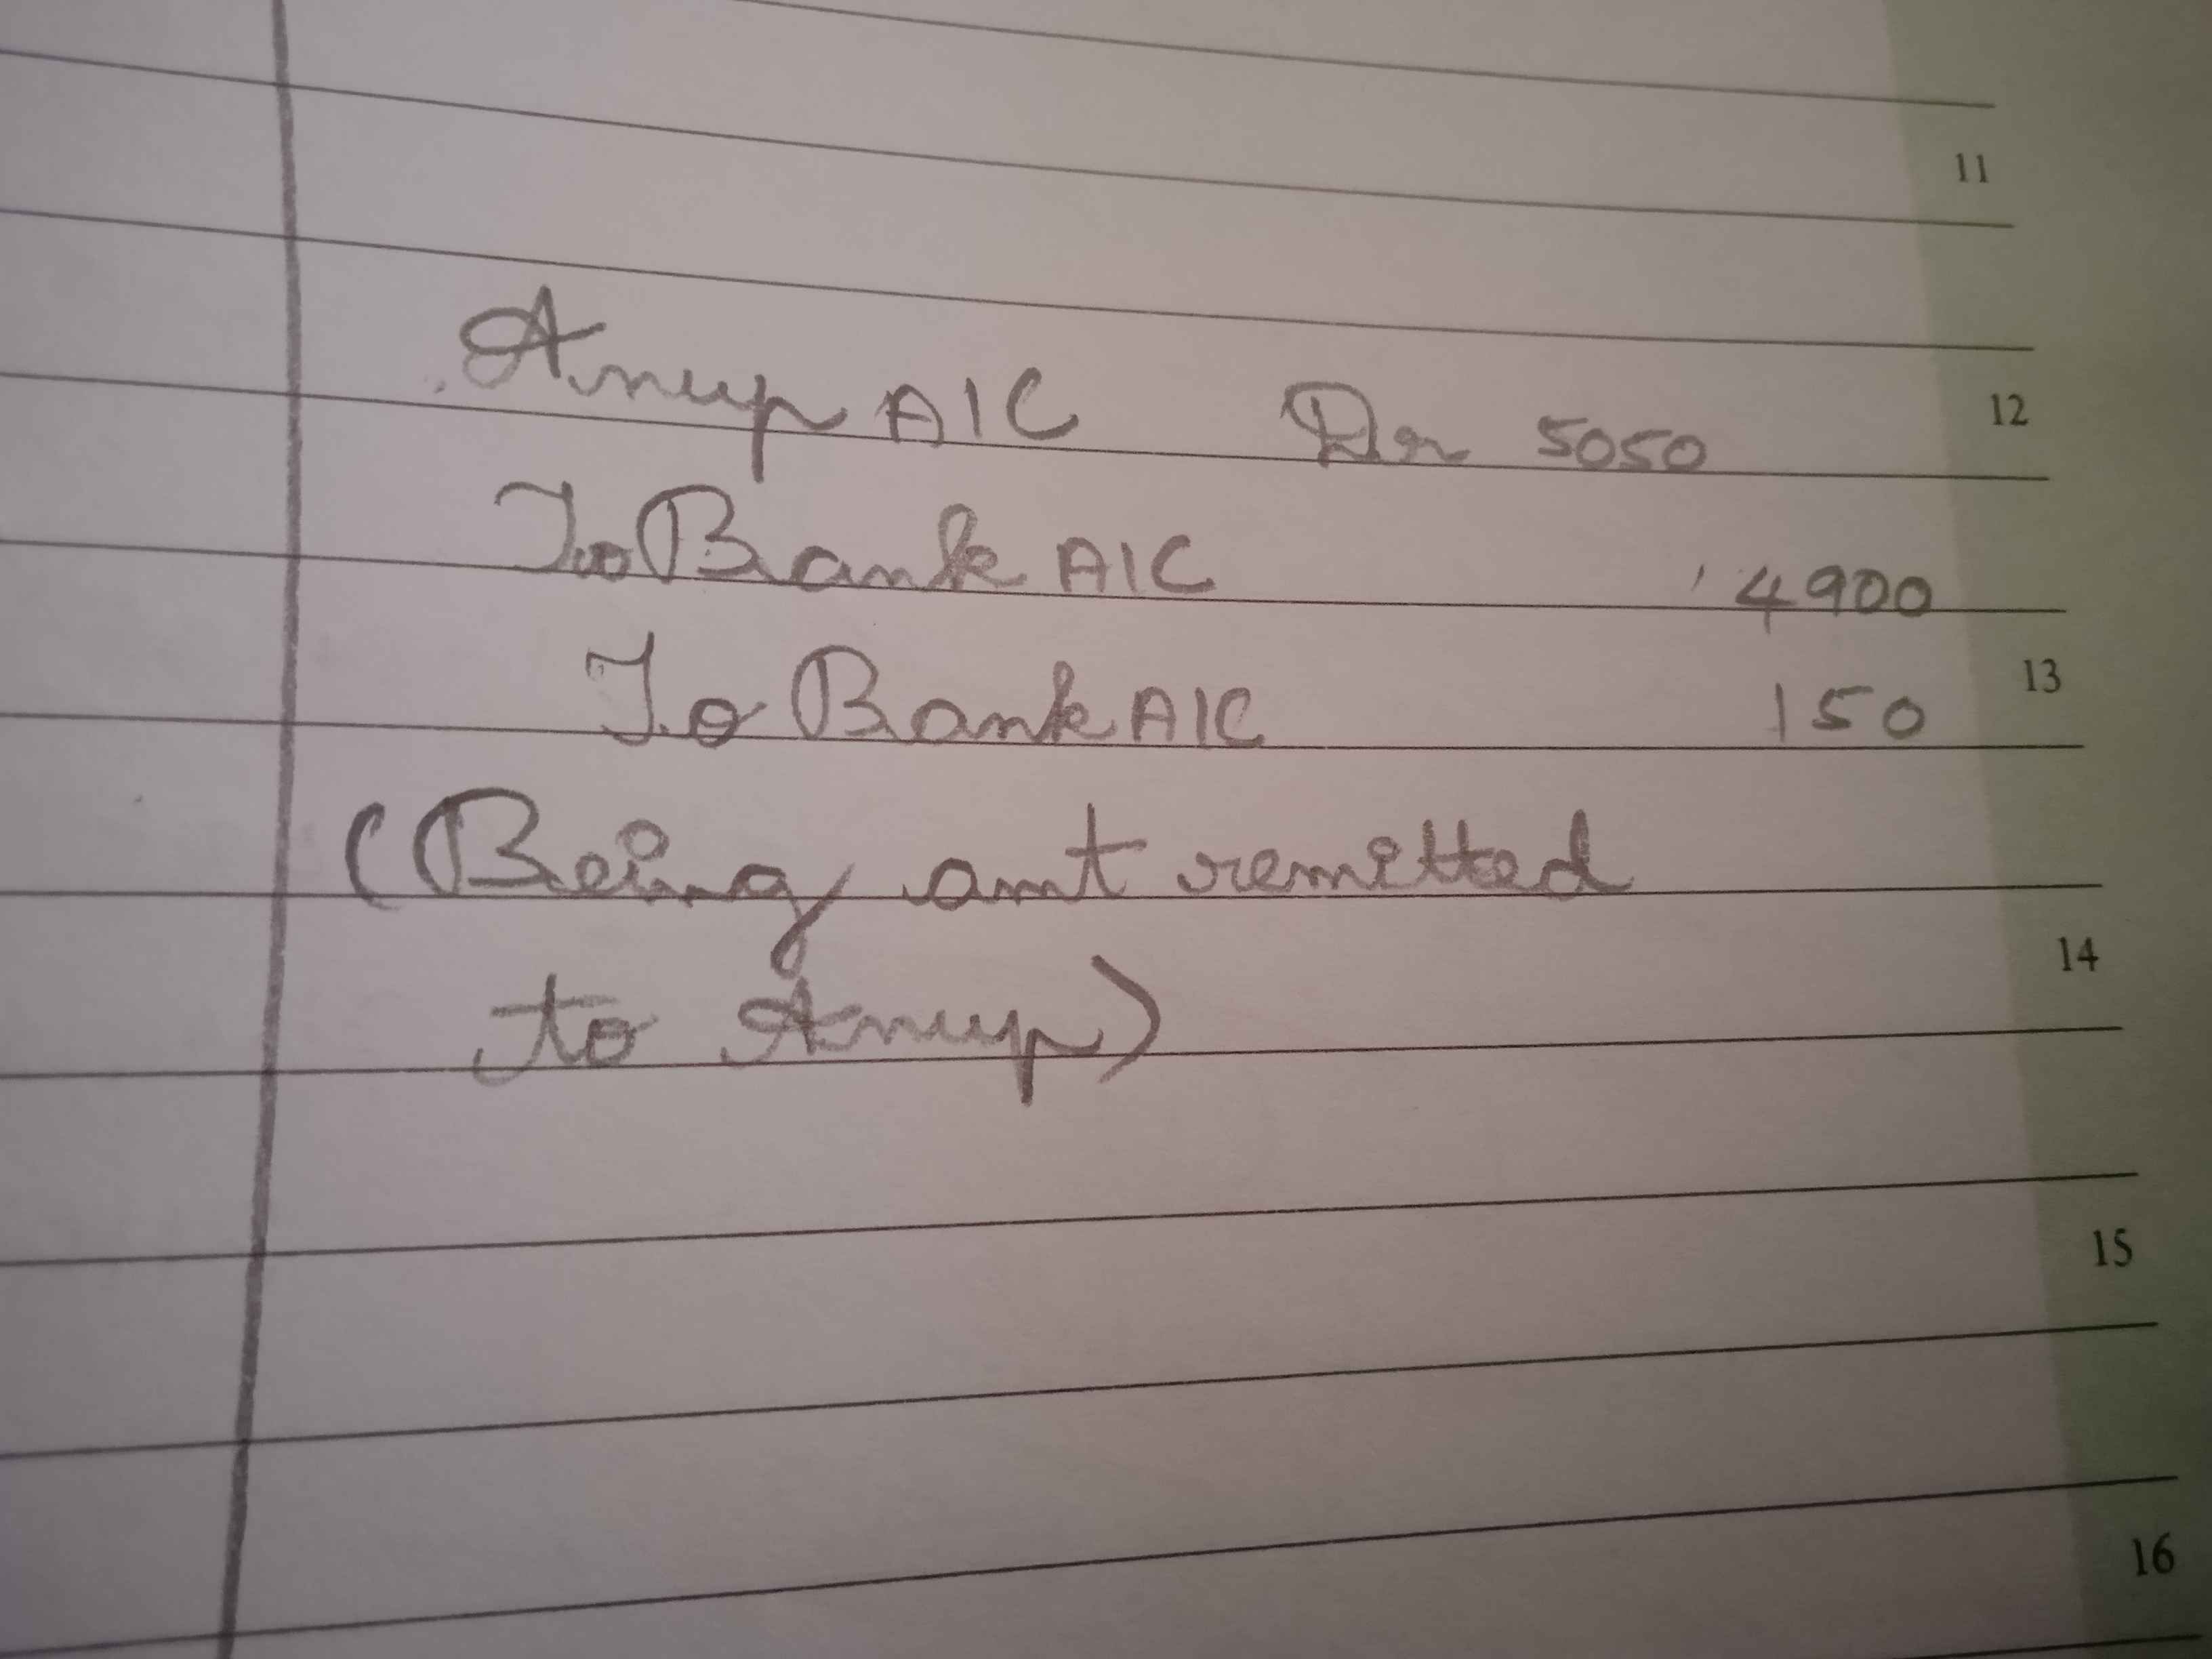 11
Anup A/C Dr 5050
12
To Bank A/C 4900
To Bank A/C 150
13
(Being amt remitted
14
to Anup)
15
16